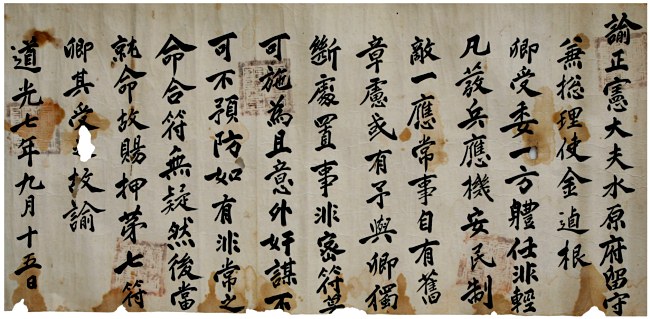 諭正憲大夫水原府留守
兼総理使金逌根
卿受委一方體任非輕
凡發兵應機安民制
敵一應常事自有舊
章慮或有予與卿獨
斷處置事非密符莫
可施為且意外奸謀不
可不預防如有非常之
命合符無疑然後當
就命故賜押第七符
卿其受 故諭
道光七年九月十五日